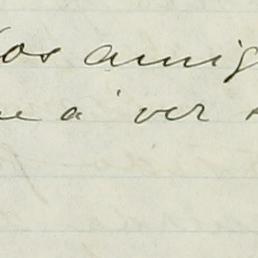 los amig
e á ver